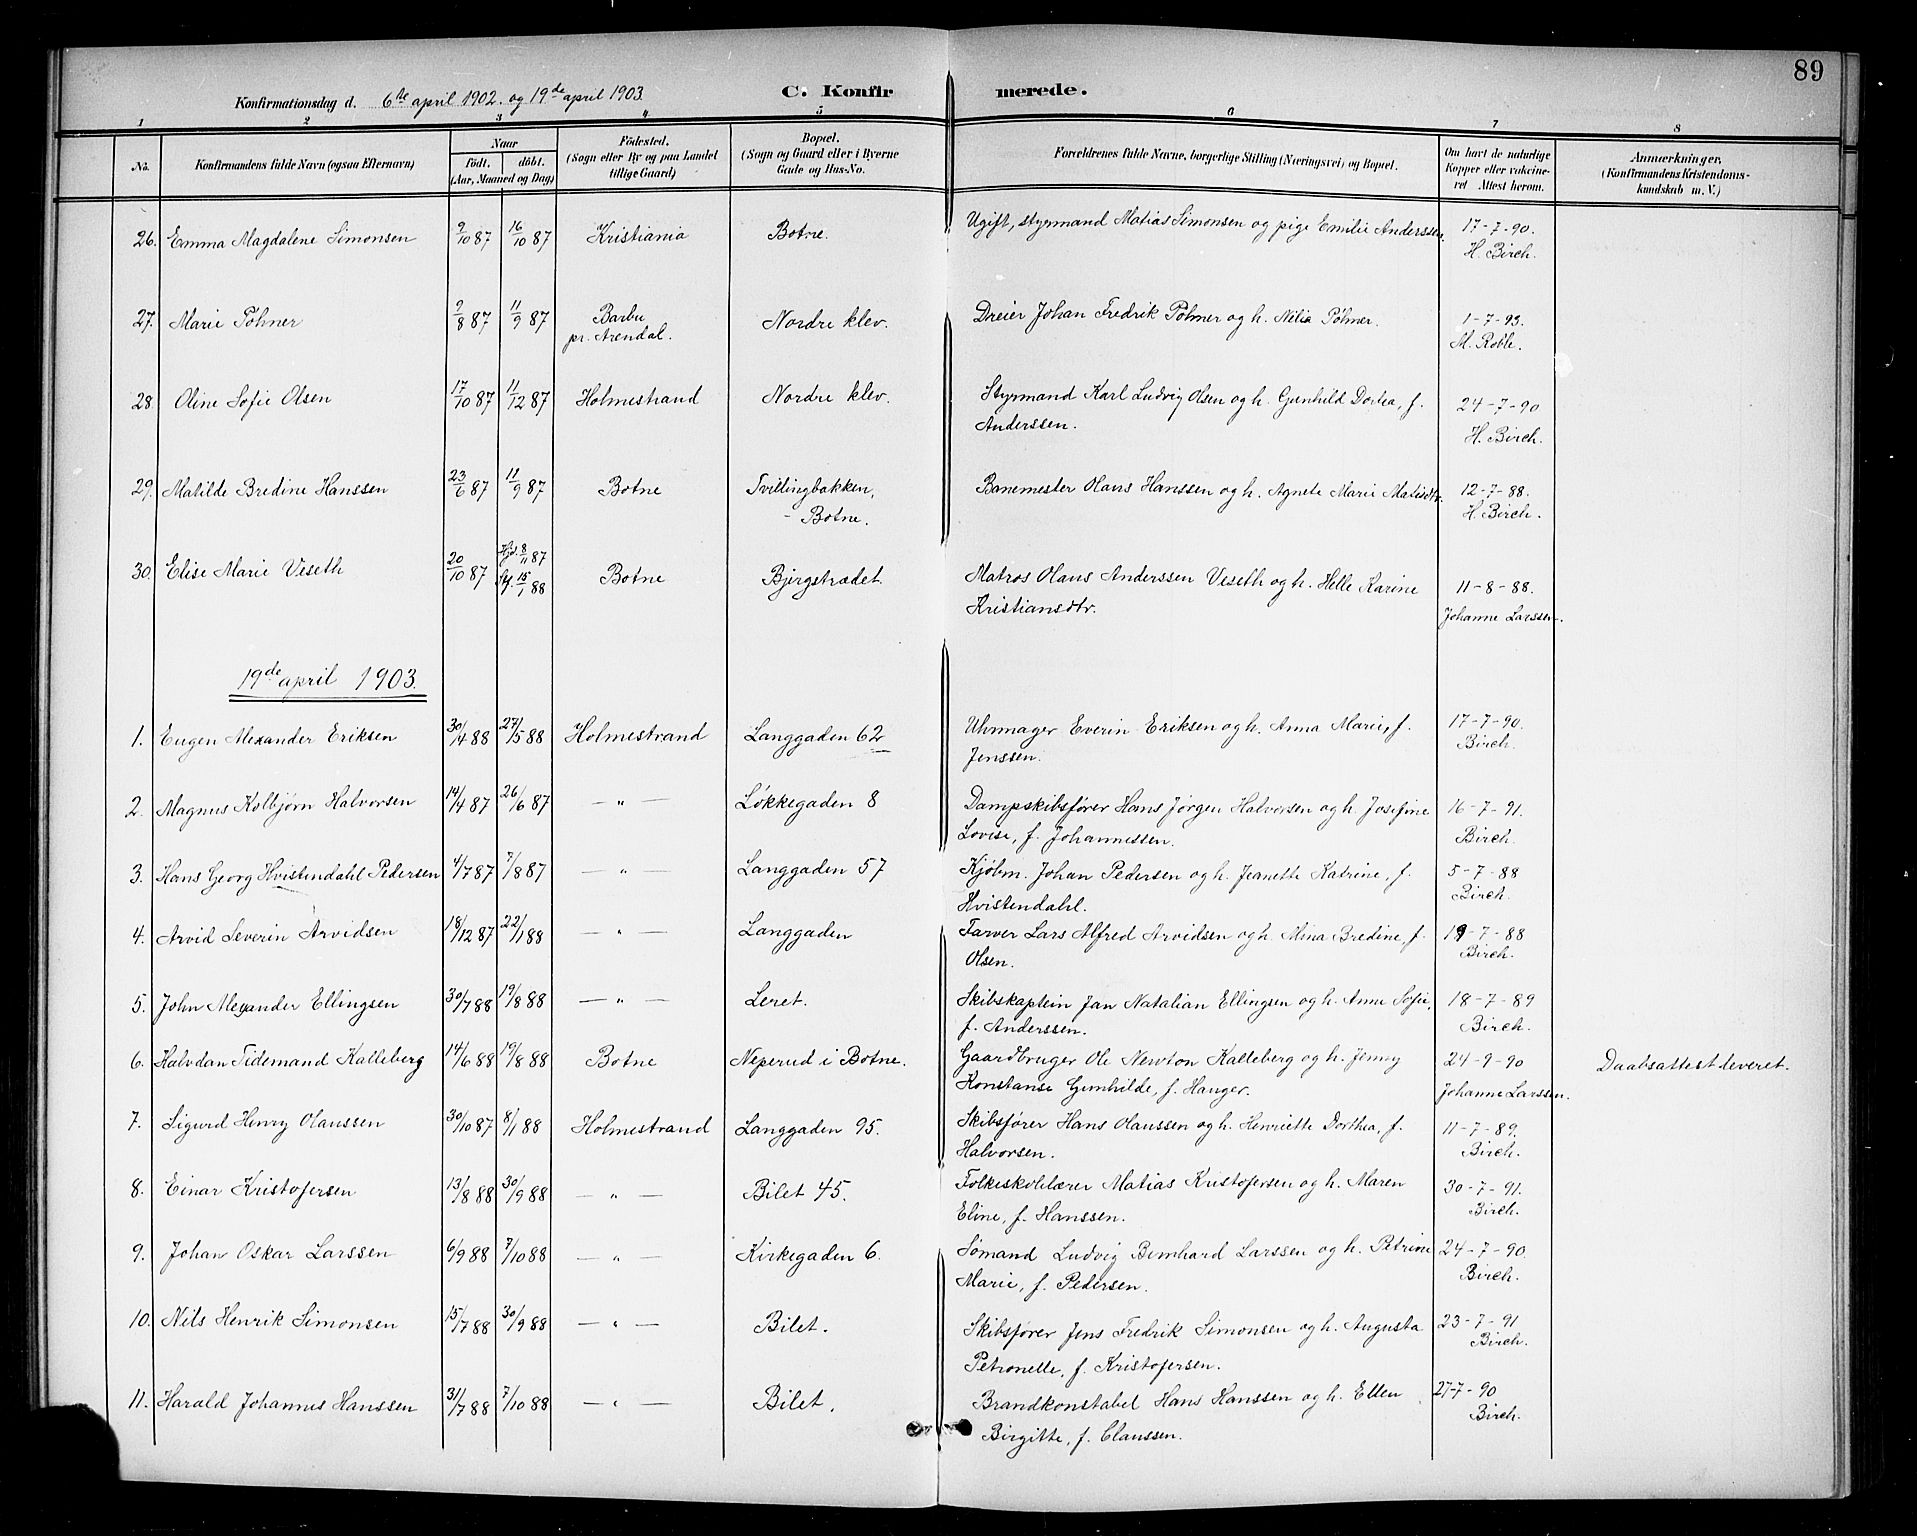 89
Konfirmationsdag d. 6te april 1902. og 19de april 1903.
C. Konfirmerede.
1 2 3 4 5 6 7 8
No. Konfirmandens fulde Navn (ogsaa Efternavn) Naar født. døbt. (Aar, Maaned og Dag) Fødested. (Sogn eller By og paa Landet tillige Gaard) Bopæl. (Sogn og Gaard eller i Byerne Gade og Hus-No. Forældrenes fulde Navne, borgerlige Stilling (Næringsvei) og Bopæl. Om havt de naturlige Kopper eller vakcineret Attest herom. Anmærkninger, (Konfirmandens Kristendomskundskab m. V.)
26. Emma Magdalene Simonsen 9/10 87 16/10 87 Kristiania Botne. Ugift, styrmand Matias Simonsen og pige Emilie Anderssen. 17-7-90.
H. Birch.
27. Marie Pöhner 9/8 87 11/9 87 Barbu Nordre klev. Dreier Johan Fredrik Pöhner og h. Nilia Pöhner. 1-7-93.
pr. Arendal. M. Roble.
28. Oline Sofie Olsen 17/10 87 11/12 87 Holmestrand Nordre klev. Styrmand Karl Ludvig Olsen og h. Gunhild Dortea, f. 24-7-90
Anderssen. H. Birch.
29. Matilde Bredine Hanssen 23/6 87 11/9 87 Botne Tvillingbakken, Banemester Olaus Hanssen og h. Agnete Marie Matisdtr. 12-7-88.
- Botne. H. Birch.
30. Elise Marie Veseth 20/10 87 Hjd. 8/11 87 Botne Bjergstrædet. Matros Olaus Anderssen Veseth og h. Helle Karine 11-8-88.
15/1 88 Kristiansdtr. Johanne Larssen.
19de april 1903.
1. Eugen Alexander Eriksen 30/4 88 27/5 88 Holmestrand Langgaden 62 Uhrmager Everin Eriksen og h. Anna Marie, f. 17-7-90.
Jenssen. Birch.
2. Magnus Kolbjørn Halvorsen 14/4 87 26/6 87 — " — Løkkegaden 8 Dampskibsfører Hans Jørgen Halvorsen og h. Josefine 16-7-91.
Lovise, f. Johannessen. Birch.
3. Hans Georg Hvistendahl Pedersen 4/7 87 7/8 87 — " — Langgaden 57 Kjøbm. Johan Pedersen og h. Jeanette Katrine, f. 5-7-88
Hvistendahl. Birch.
4. Arvid Severin Arvidsen 18/12 87 22/1 88 — " — Langgaden Farver Lars Alfred Arvidsen og h. Mina Bredine, f. 19-7-88
Olsen. Birch.
5. John Alexander Ellingsen 30/7 88 19/8 88 — " — Leret. Skibskaptein Jan Natalian Ellingsen og h. Anne Sofie, 18-7-89
f. Anderssen. Birch.
6. Halvdan Tidemand Kalleberg 14/6 88 19/8 88 Botne Neperud i Botne. Gaardbruger Ole Newton Kalleberg og h. Jenny 24-9-90 Daabsattest leveret.
Konstanse Gunhilde, f. Hanger. Johanne Larssen.
7. Sigurd Henry Olaussen 30/10 87 8/1 88 Holmestrand Langgaden 95. Skibsfører Hans Olaussen og h. Henriette Dorthea, f. 11-7-89.
Halvorsen. Birch.
8. Einar Kristofersen 13/8 88 30/9 88 — " — Bilet 45. Folkeskolelærer Matias Kristofersen og h. Maren 30-7-91.
Eline, f. Hanssen. Birch.
9. Johan Oskar Larssen 6/9 88 7/10 88 — " — Kirkegaden 6. Sømand Ludvig Bernhard Larssen og h. Petrine 24-7-90.
Marie, f. Pedersen. Birch.
10. Nils Henrik Simonsen 15/7 88 30/9 88 — " — Bilet. Skibsfører Jens Fredrik Simonsen og h. Augusta 23-7-91
Petronelle, f. Kristofersen. Birch.
11. Harald Johannes Hanssen 31/7 88 7/10 88 — " — Bilet. Brandkonstabel Hans Hanssen og h. Ellen 27-7-90
Birgitte, f. Claussen. Birch.